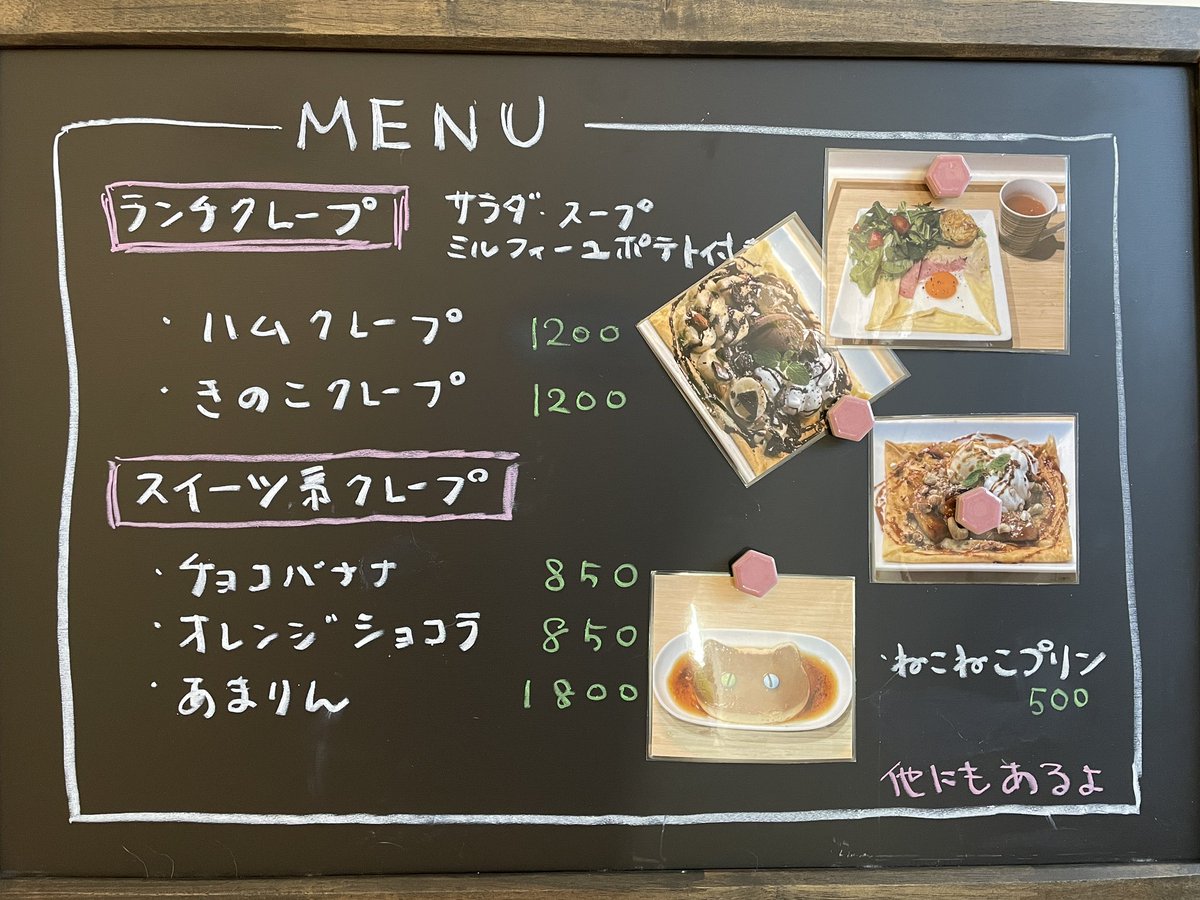 MENU
ランチクレープ
サラダ・スープ
ミルフィーユポテト付
・ハムクレープ 1200
・きのこクレープ 1200
スイーツ系クレープ
・チョコバナナ 850
・オレンジショコラ 850
・あまりん 1800
・ねこねこプリン
500
他にもあるよ